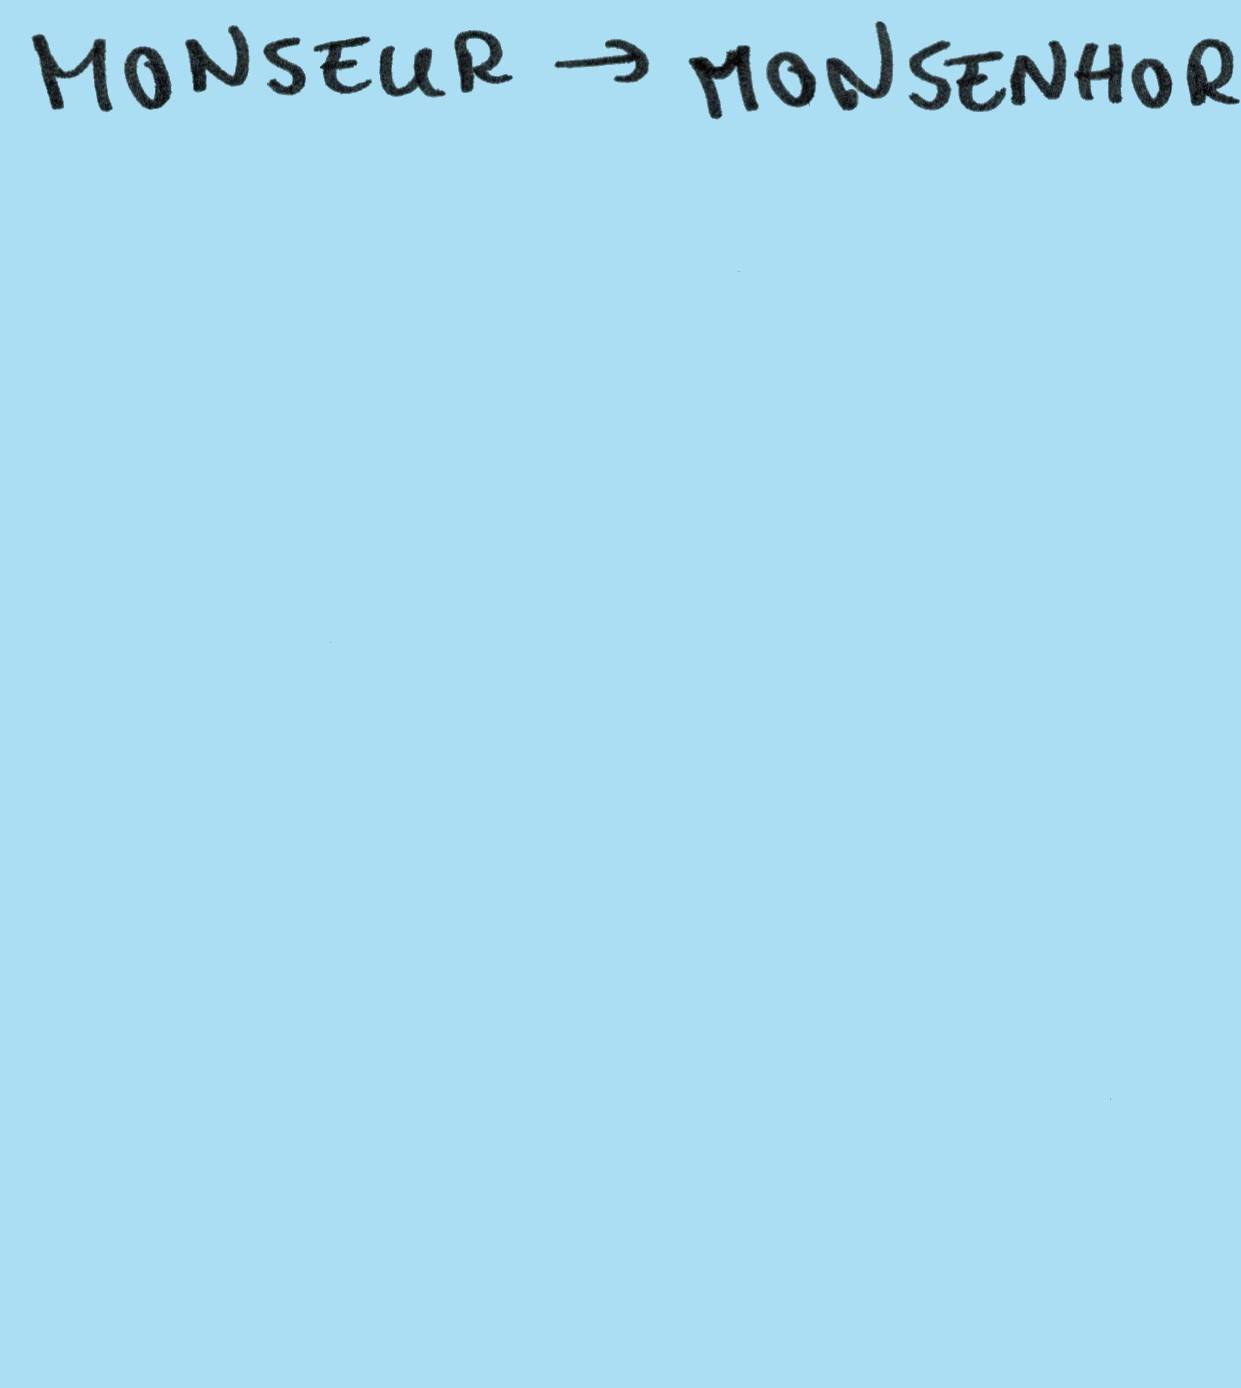 MONSEUR → MONSENHOR